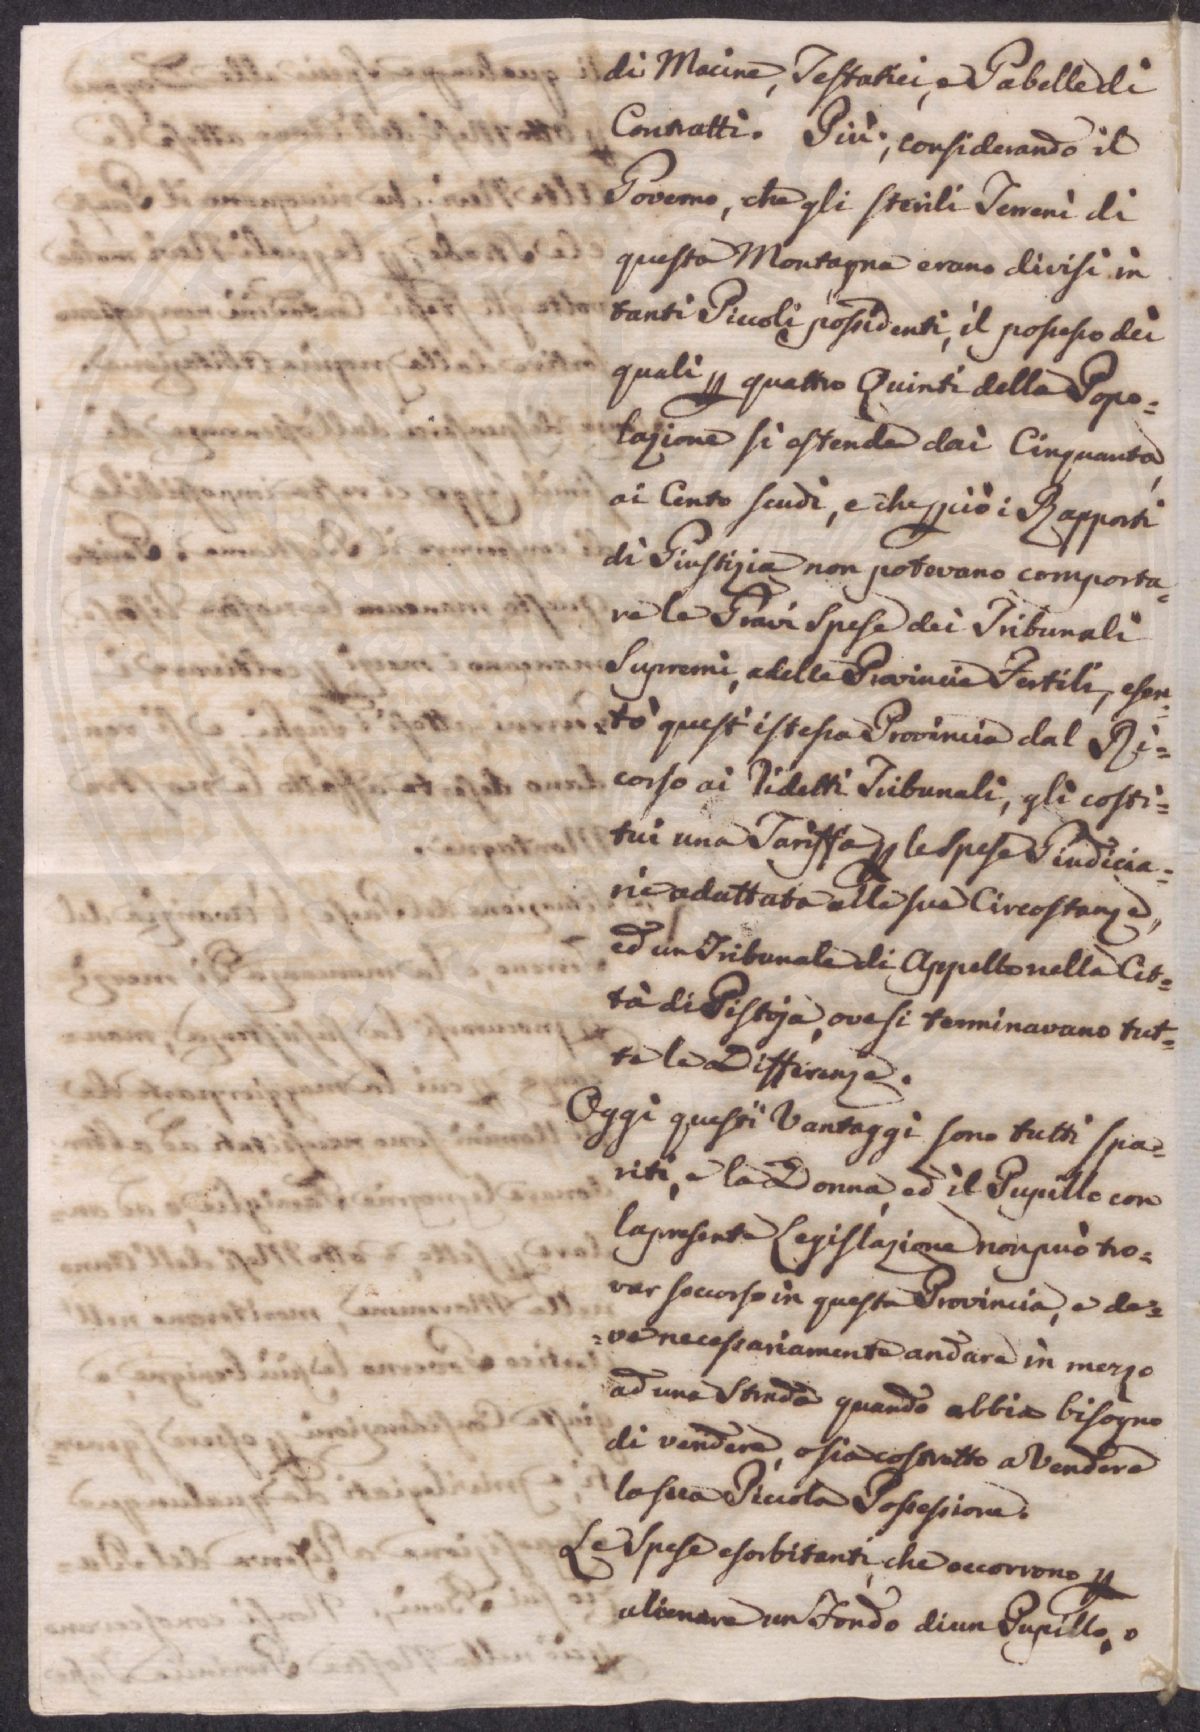 di Macine, Testatici, e Gabelle di
Contratti. Più; considerando il
Governo, che gli sterili Terreni di
questa Montagna erano divisi in
tanti Piccoli possidenti, il possesso dei
quali p quattro Quinti della Popo=
lazione si estende dai Cinquanta,
ai Cento scudi, e che pciò i Rapporti
di Giustizia non potevano comporta=
re le Gravi Spese dei Tribunali
Supremi, e delle Provincie Fertili, esen=
tò quest'istessa Provincia dal Ri=
corso ai Videtti Tribunali, gli costi=
tuì una Tariffa p le Spese Giudicia=
rie adattata alle sue Circostanze,
ed un Tribunale di Appello nella Cit=
tà di Pistoja, ove si terminavano tut=
te le Differenze.
Oggi questi Vantaggi sono tutti spa=
riti, e la Donna, ed il Pupillo con
la presente Legislazione non può tro=
var soccorso in questa Provincia, e de=
=ve necessariamente andare in mezzo
ad una Strada quando abbia bisogno
di vendere, o sia costretto a Vendere
la sua Piccola Possessione.
Le Spese esorbitanti, che occorrono p
alienare un Fondo di un Pupillo, o